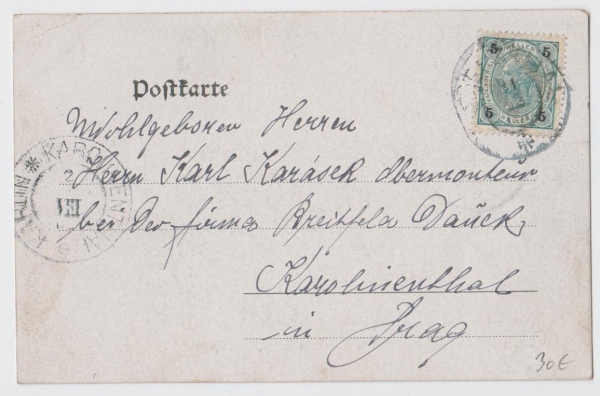 Postkarte
5 5
5 5
Wohlgeboren Herren
Herrn Karl Karásek Obermonteur
bei der firma Breitfeld Daněk
Karolinenthal
in Prag
KAROLINENTHAL
KARLÍN
2
VIII
30€